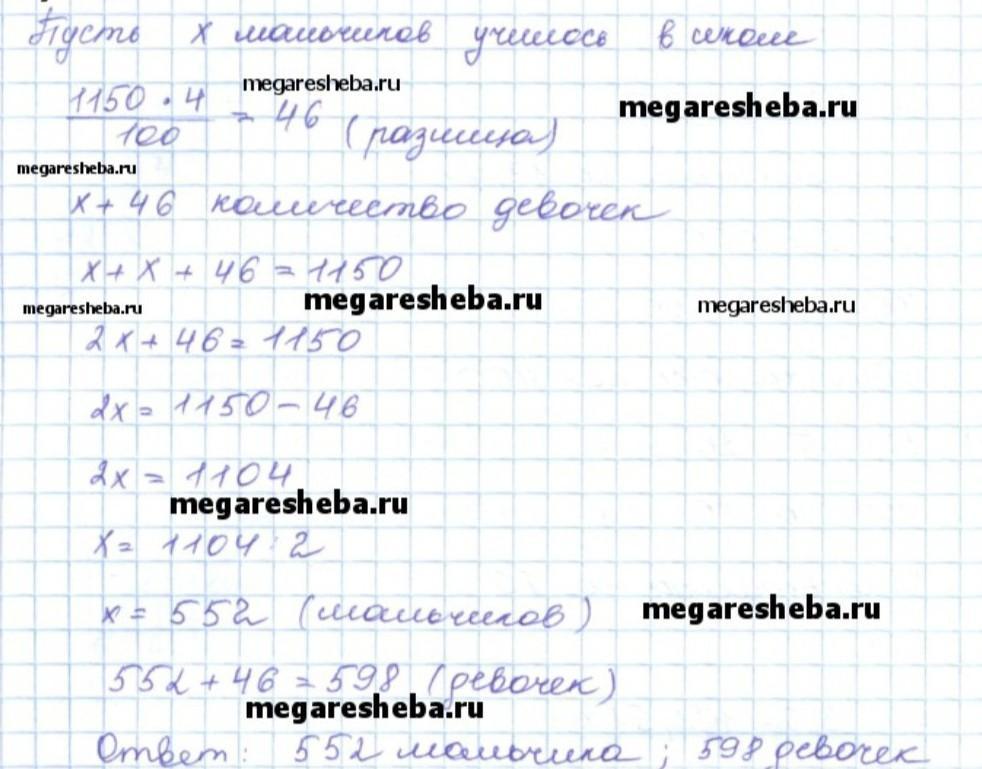 Пусть x мальчиков училось в школе
megaresheba.ru
megaresheba.ru
1150 · 4 / 100 = 46 (разница)
megaresheba.ru
x + 46 количество девочек
x + x + 46 = 1150
megaresheba.ru
megaresheba.ru
megaresheba.ru
2x + 46 = 1150
2x = 1150 - 46
2x = 1104
megaresheba.ru
x = 1104 : 2
x = 552 (мальчиков)
megaresheba.ru
552 + 46 = 598 (девочек)
megaresheba.ru
Ответ: 552 мальчика ; 598 девочек